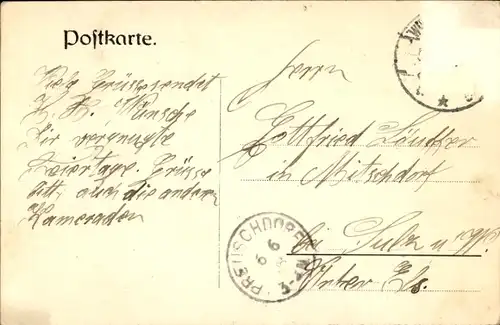 Postkarte.
Viele Grüsse sendet
Wünsche
Dir vergnügte
Feiertage. Grüsse
bitte auch die anderen
Kameraden
Herrn
Gottfried
in Mitschdorf
bei Sulz u. W.
Unter Els.
PREUSCHDORF
6 6
3-4N